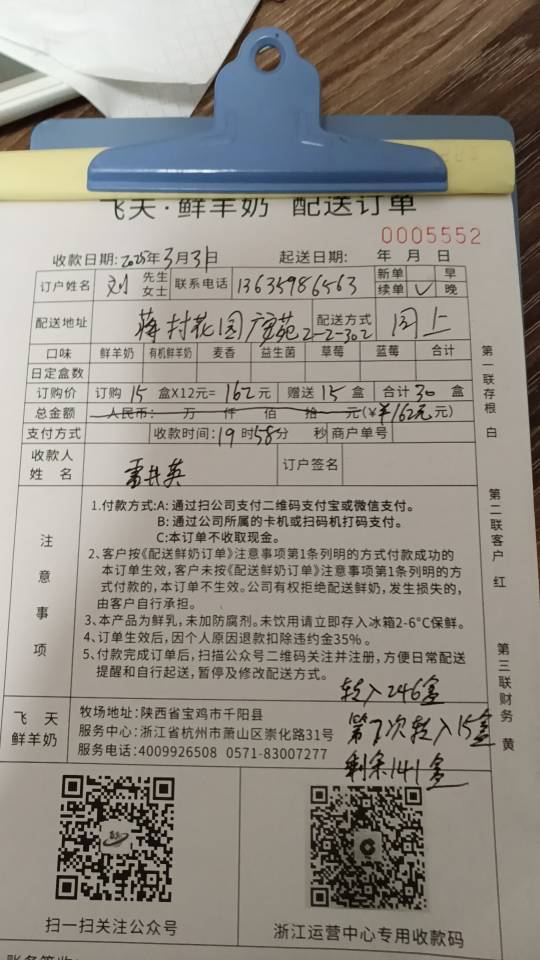 飞天·鲜羊奶 配送订单
0005552
收款日期:2025年3月31日 起送日期: 年 月 日
订户姓名 刘 先生 女士 联系电话 13635986563 新单 早 续单 ✓ 晚
配送地址 蒋村花园广安苑2-2-302 配送方式 同上
口味 鲜羊奶 有机鲜羊奶 麦香 益生菌 草莓 蓝莓 合计
日定盒数
订购价 订购 15 盒X12元= 162元 赠送 15 盒 合计 30 盒
总金额 人民币: 万 仟 佰 拾 元(¥¥162元 元)
支付方式 收款时间: 19 时 58分 秒 商户单号
收款人姓名 订户签名
注意事项
1.付款方式:A: 通过扫公司支付二维码支付宝或微信支付。
B: 通过公司所属的卡机或扫码机打码支付。
C:本订单不收取现金。
2、客户按《配送鲜奶订单》注意事项第1条列明的方式付款成功的
本订单生效，客户未按《配送鲜奶订单》注意事项第1条列明的方
式付款的，本订单不生效。公司有权拒绝配送鲜奶，发生损失的，
由客户自行承担。
3、本产品为鲜乳，未加防腐剂。未饮用请立即存入冰箱2-6°C保鲜。
4、订单生效后，因个人原因退款扣除违约金35%。
5、付款完成订单后，扫描公众号二维码关注并注册，方便日常配送
提醒和自行起送，暂停及修改配送方式。
转入246盒
第7次转入15盒
剩余141盒
飞天鲜羊奶
牧场地址:陕西省宝鸡市千阳县
服务中心:浙江省杭州市萧山区崇化路31号
服务电话:4009926508 0571-83007277
第一联存根 白
第二联客户 红
第三联财务 黄
扫一扫关注公众号
浙江运营中心专用收款码